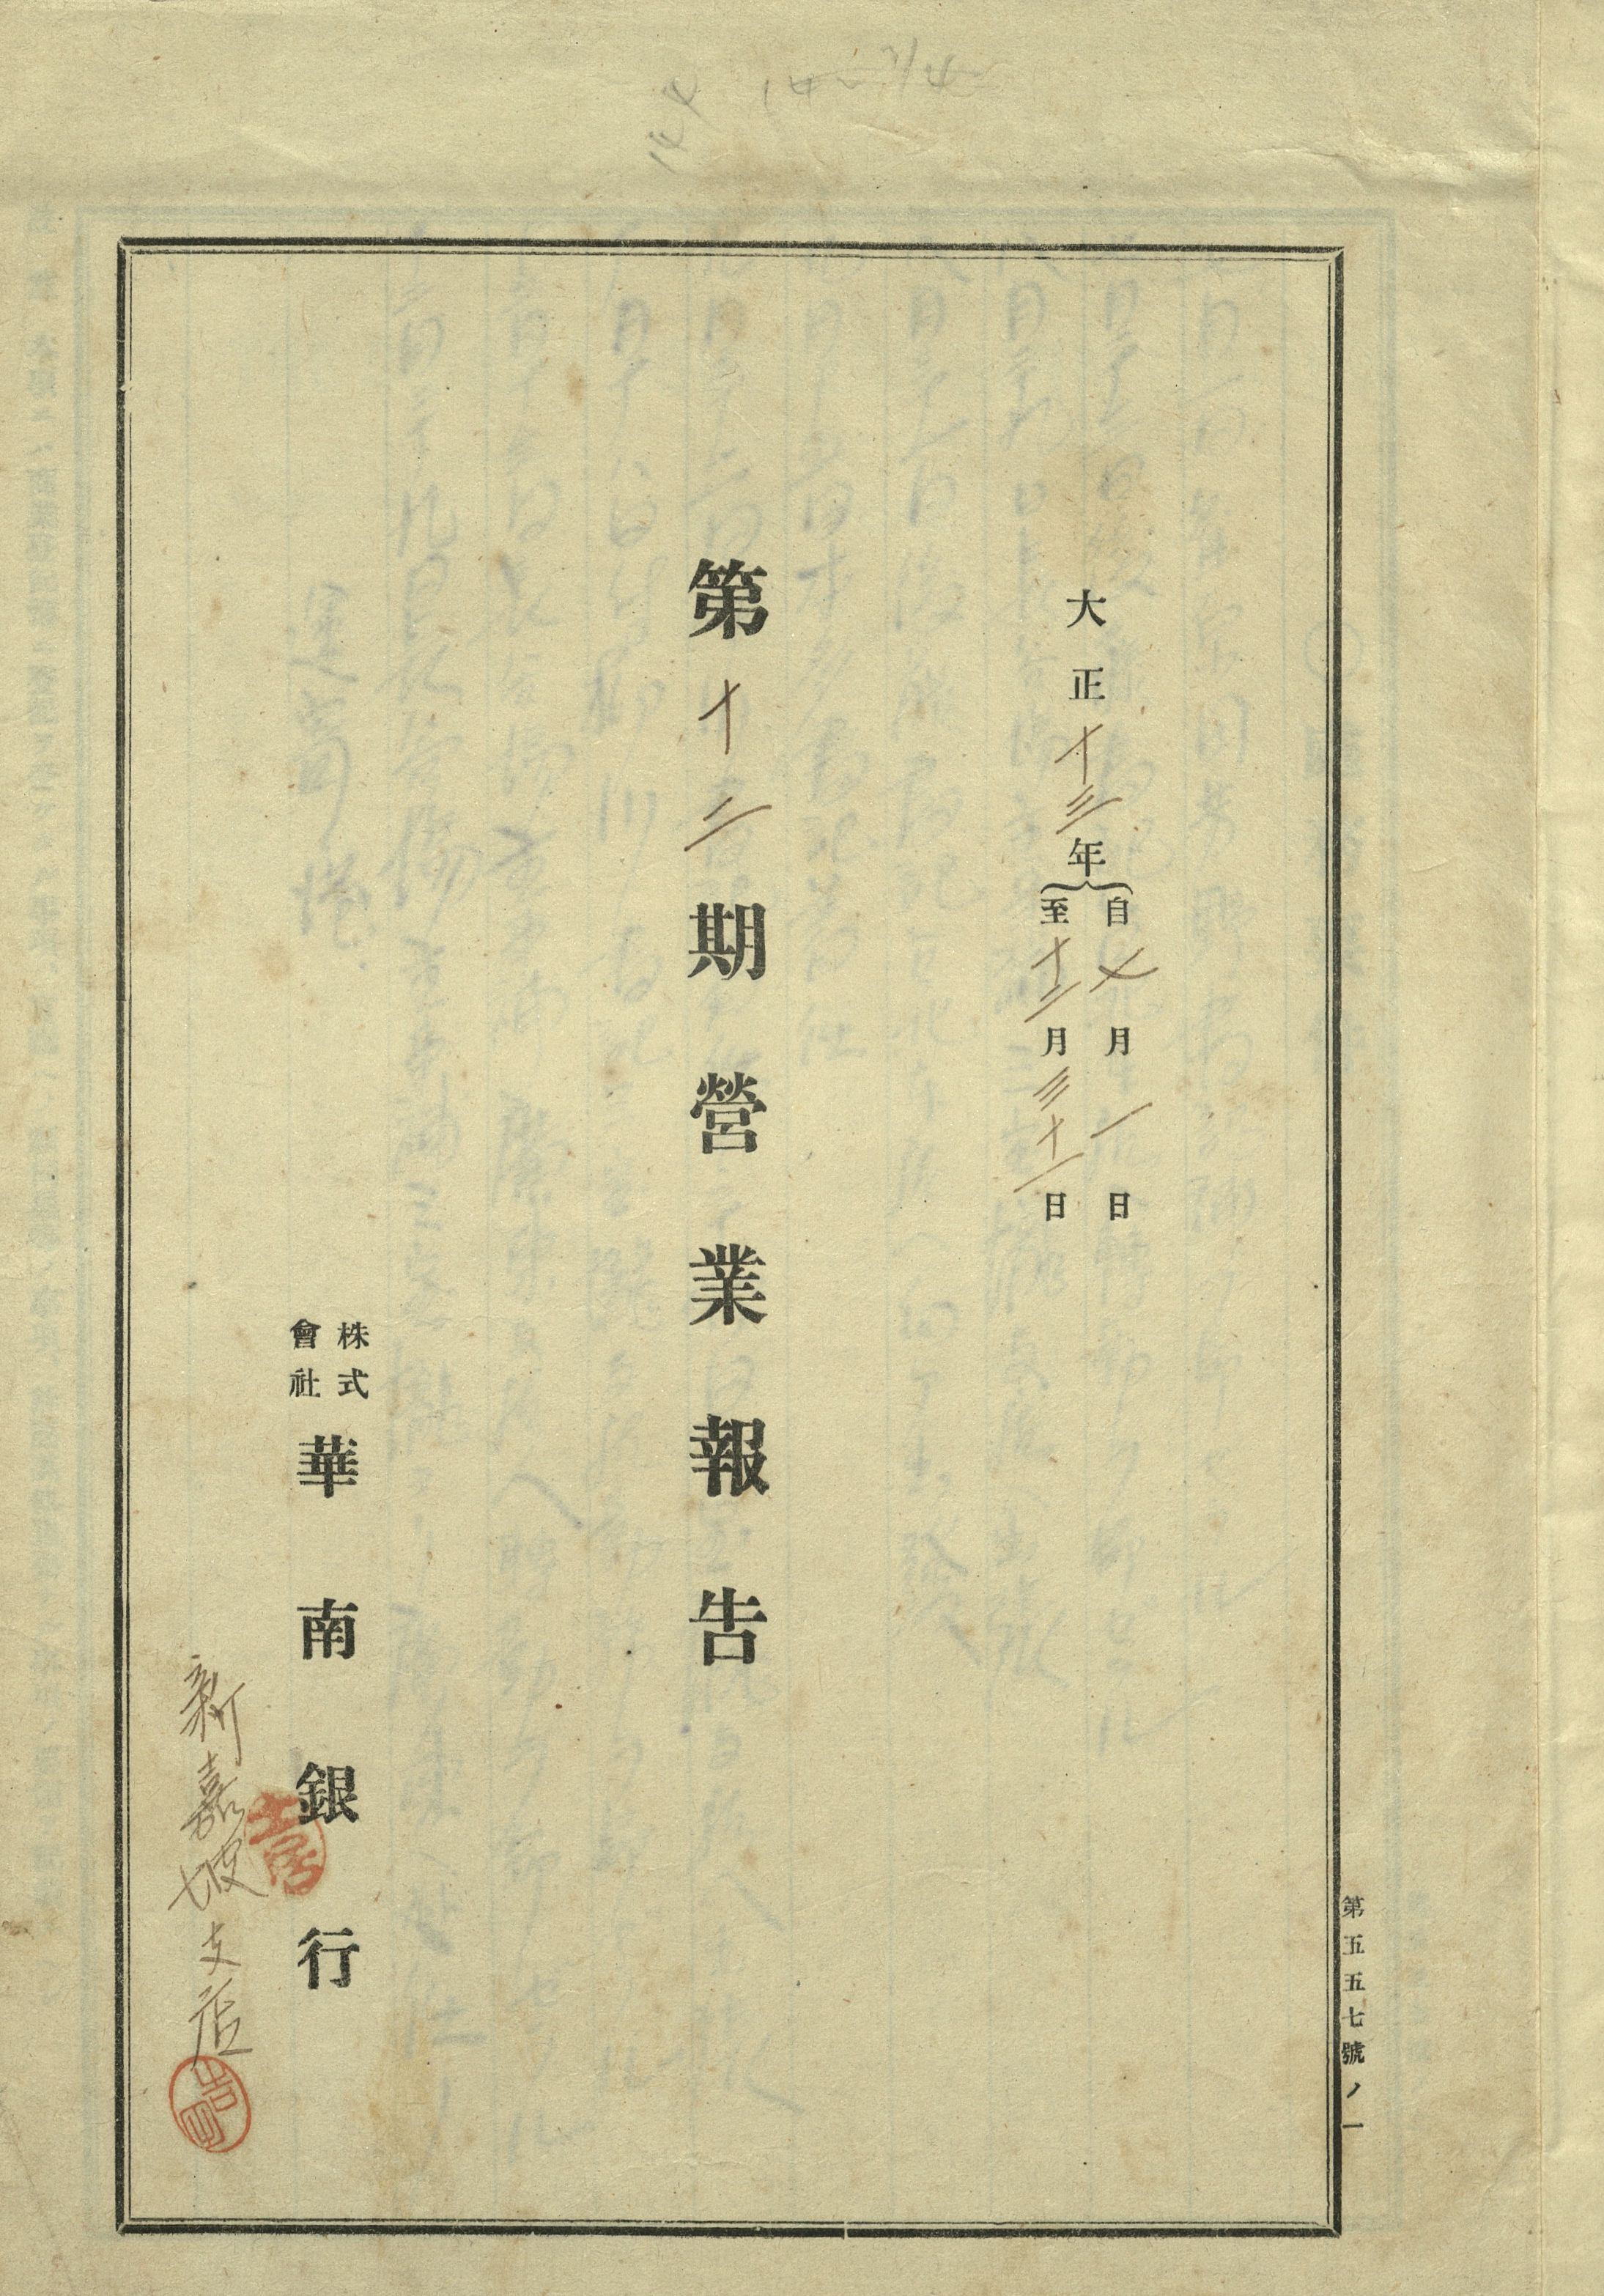 第五五七號ノ一
大正十三年
自七月一日
至十二月三十一日
第十二期營業報告
株式會社華南銀行
新嘉坡支店